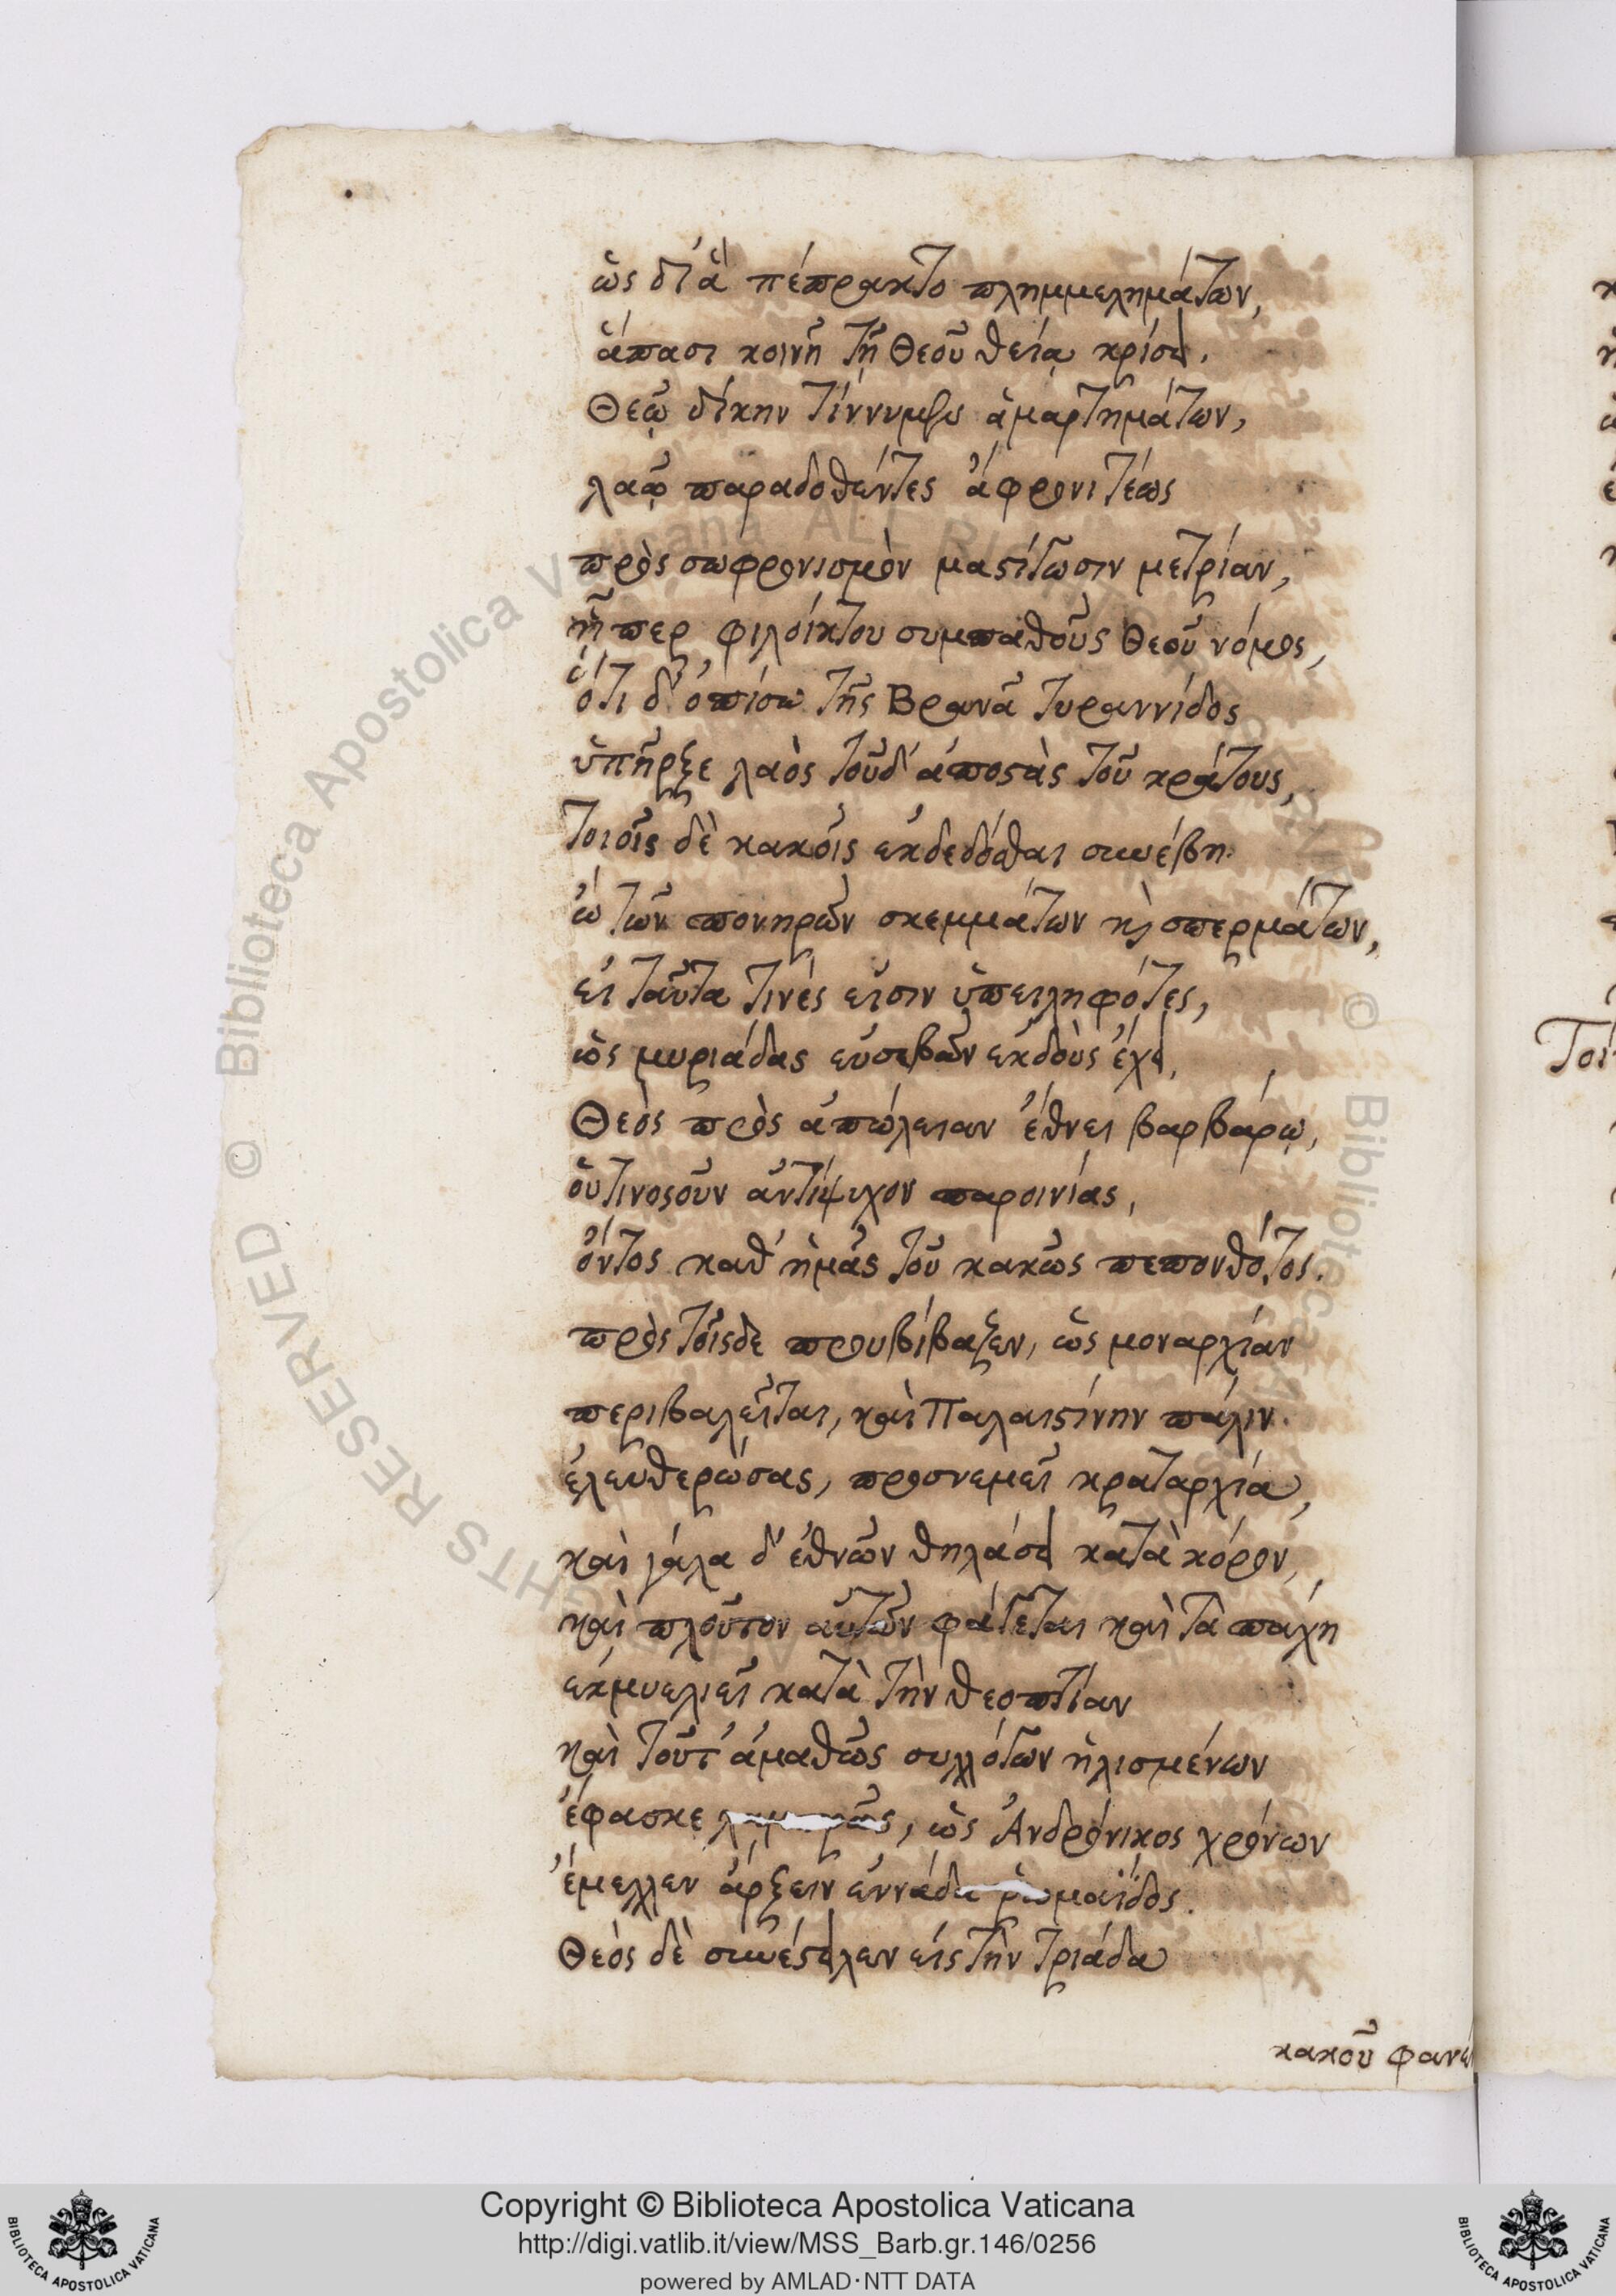 ὡς δι' ἃ πέπρακτο πλημμελημάτων,
ἅπασι κοινῇ τῇ Θεοῦ θείᾳ κρίσει.
Θεῷ δίκην τίννυμεν ἁμαρτημάτων,
λαῷ παραδοθέντες ἀφρονιτέως
πρὸς σωφρονισμὸν μαστίγωσιν μετρίαν,
ᾗπερ φιλοίκτου συμπαθοῦς Θεοῦ νόμος,
ὅτι δ' ὀπίσω τῆς Βρανᾶ τυραννίδος
ὑπῆρξε λαὸς τοῦδ' ἀποστὰς τοῦ κράτους,
τοιοῖς δὲ κακοῖς ἐκδεδόσθαι συνέβη.
ὢ τῶν πονηρῶν σκεμμάτων καὶ σπερμάτων,
εἰ ταῦτα τινές εἰσιν ὑπειληφότες,
ὡς μυριάδας εὐσεβῶν ἐκδοὺς ἔχει,
Θεὸς πρὸς ἀπώλειαν ἔθνει βαρβάρῳ,
οὑτινοσοῦν ἀντίψυχον παροινίας,
ὄντος καθ' ἡμᾶς τοῦ κακῶς πεπονθότος.
πρὸς τοῖσδε προυβίβαζεν, ὡς μοναρχίαν
περιβαλεῖται, καὶ Παλαιστίνην πάλιν.
ἐλευθερώσας, προσνεμεῖ κραταρχίᾳ,
καὶ γάλα δ' ἐθνῶν θηλάσει κατὰ κόρον,
καὶ πλοῦτον αὐτῶν φάγεται καὶ τὰ πάχη
ἐκμυελιεῖ κατὰ τὴν θεοπτίαν
καὶ τοῦτ' ἀμαθῶς συλλόγων ἡλισμένων
ἔφασκε λαμπρῶς, ὡς Ἀνδρόνικος χρόνων
ἔμελλεν ἄρξειν ἐννάδα ῥωμαΐδος.
Θεὸς δὲ συνέστειλεν εἰς τὴν τριάδα
κακοῦ
© Biblioteca Apostolica Vaticana ALL RIGHTS RESERVED
Copyright © Biblioteca Apostolica Vaticana
http://digi.vatlib.it/view/MSS_Barb.gr.146/0256
powered by AMLAD·NTT DATA
BIBLIOTECA APOSTOLICA VATICANA
BIBLIOTECA APOSTOLICA VATICANA